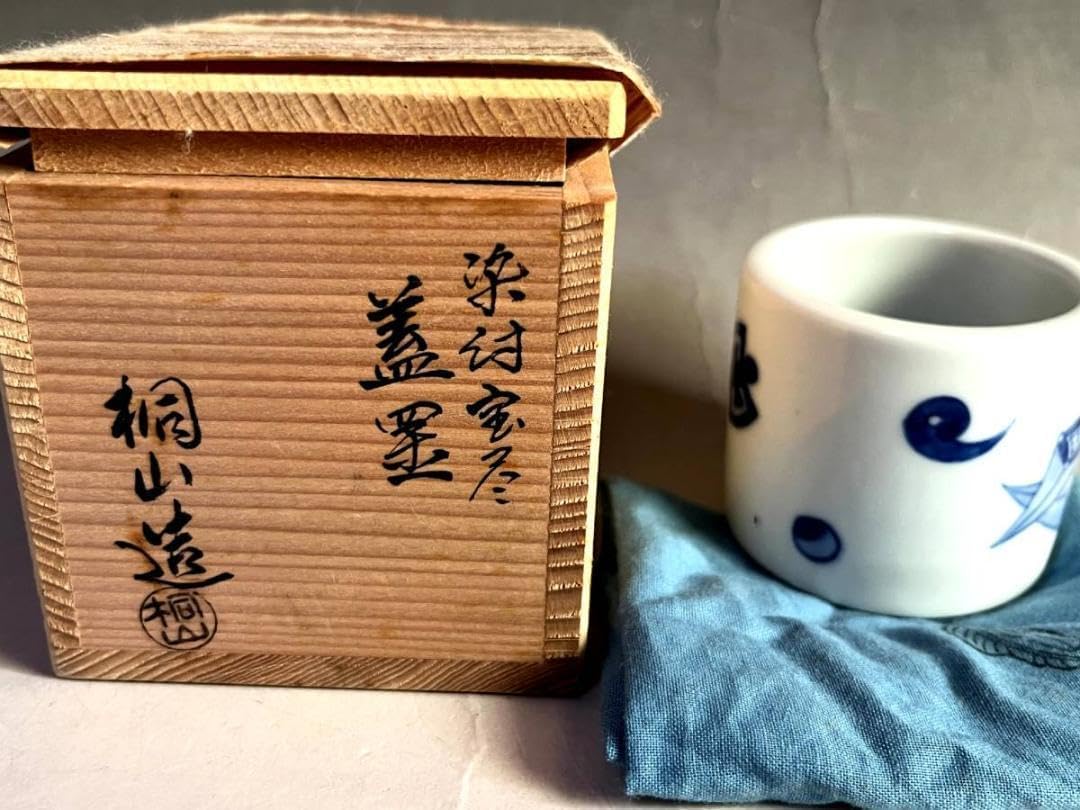 染付宝尽
蓋置
桐山造
桐山